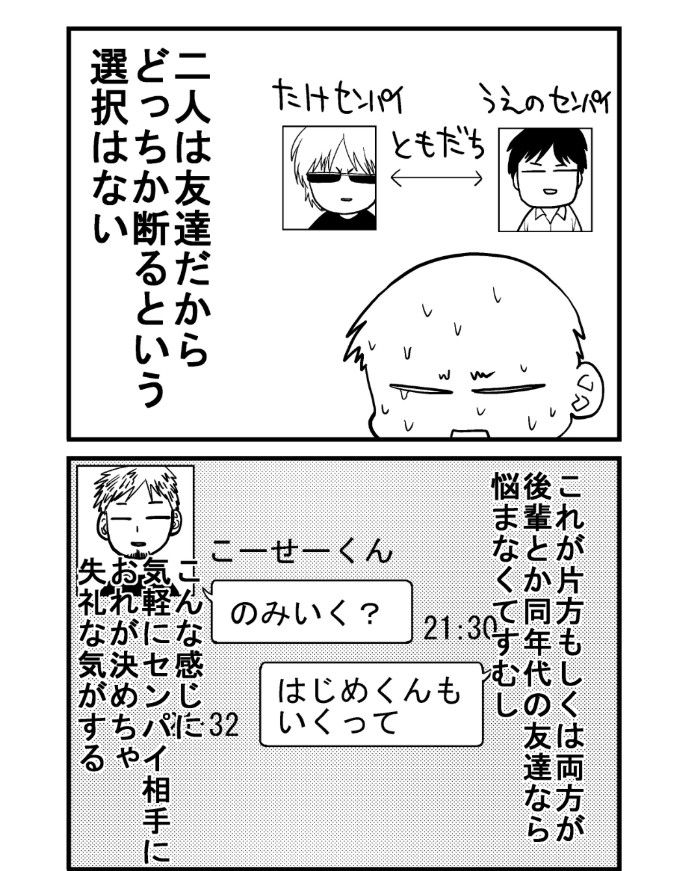 二人は友達だから
どっちか断るという
選択はない
うえのセンパイ
ともだち
たけセンパイ
これが片方もしくは両方が
後輩とか同年代の友達なら
悩まなくてすむし
こーせーくん
のみいく？
21:30
はじめくんも
いくって
:32
こんな感じに
気軽にセンパイ相手に
おれが決めちゃ
失礼な気がする